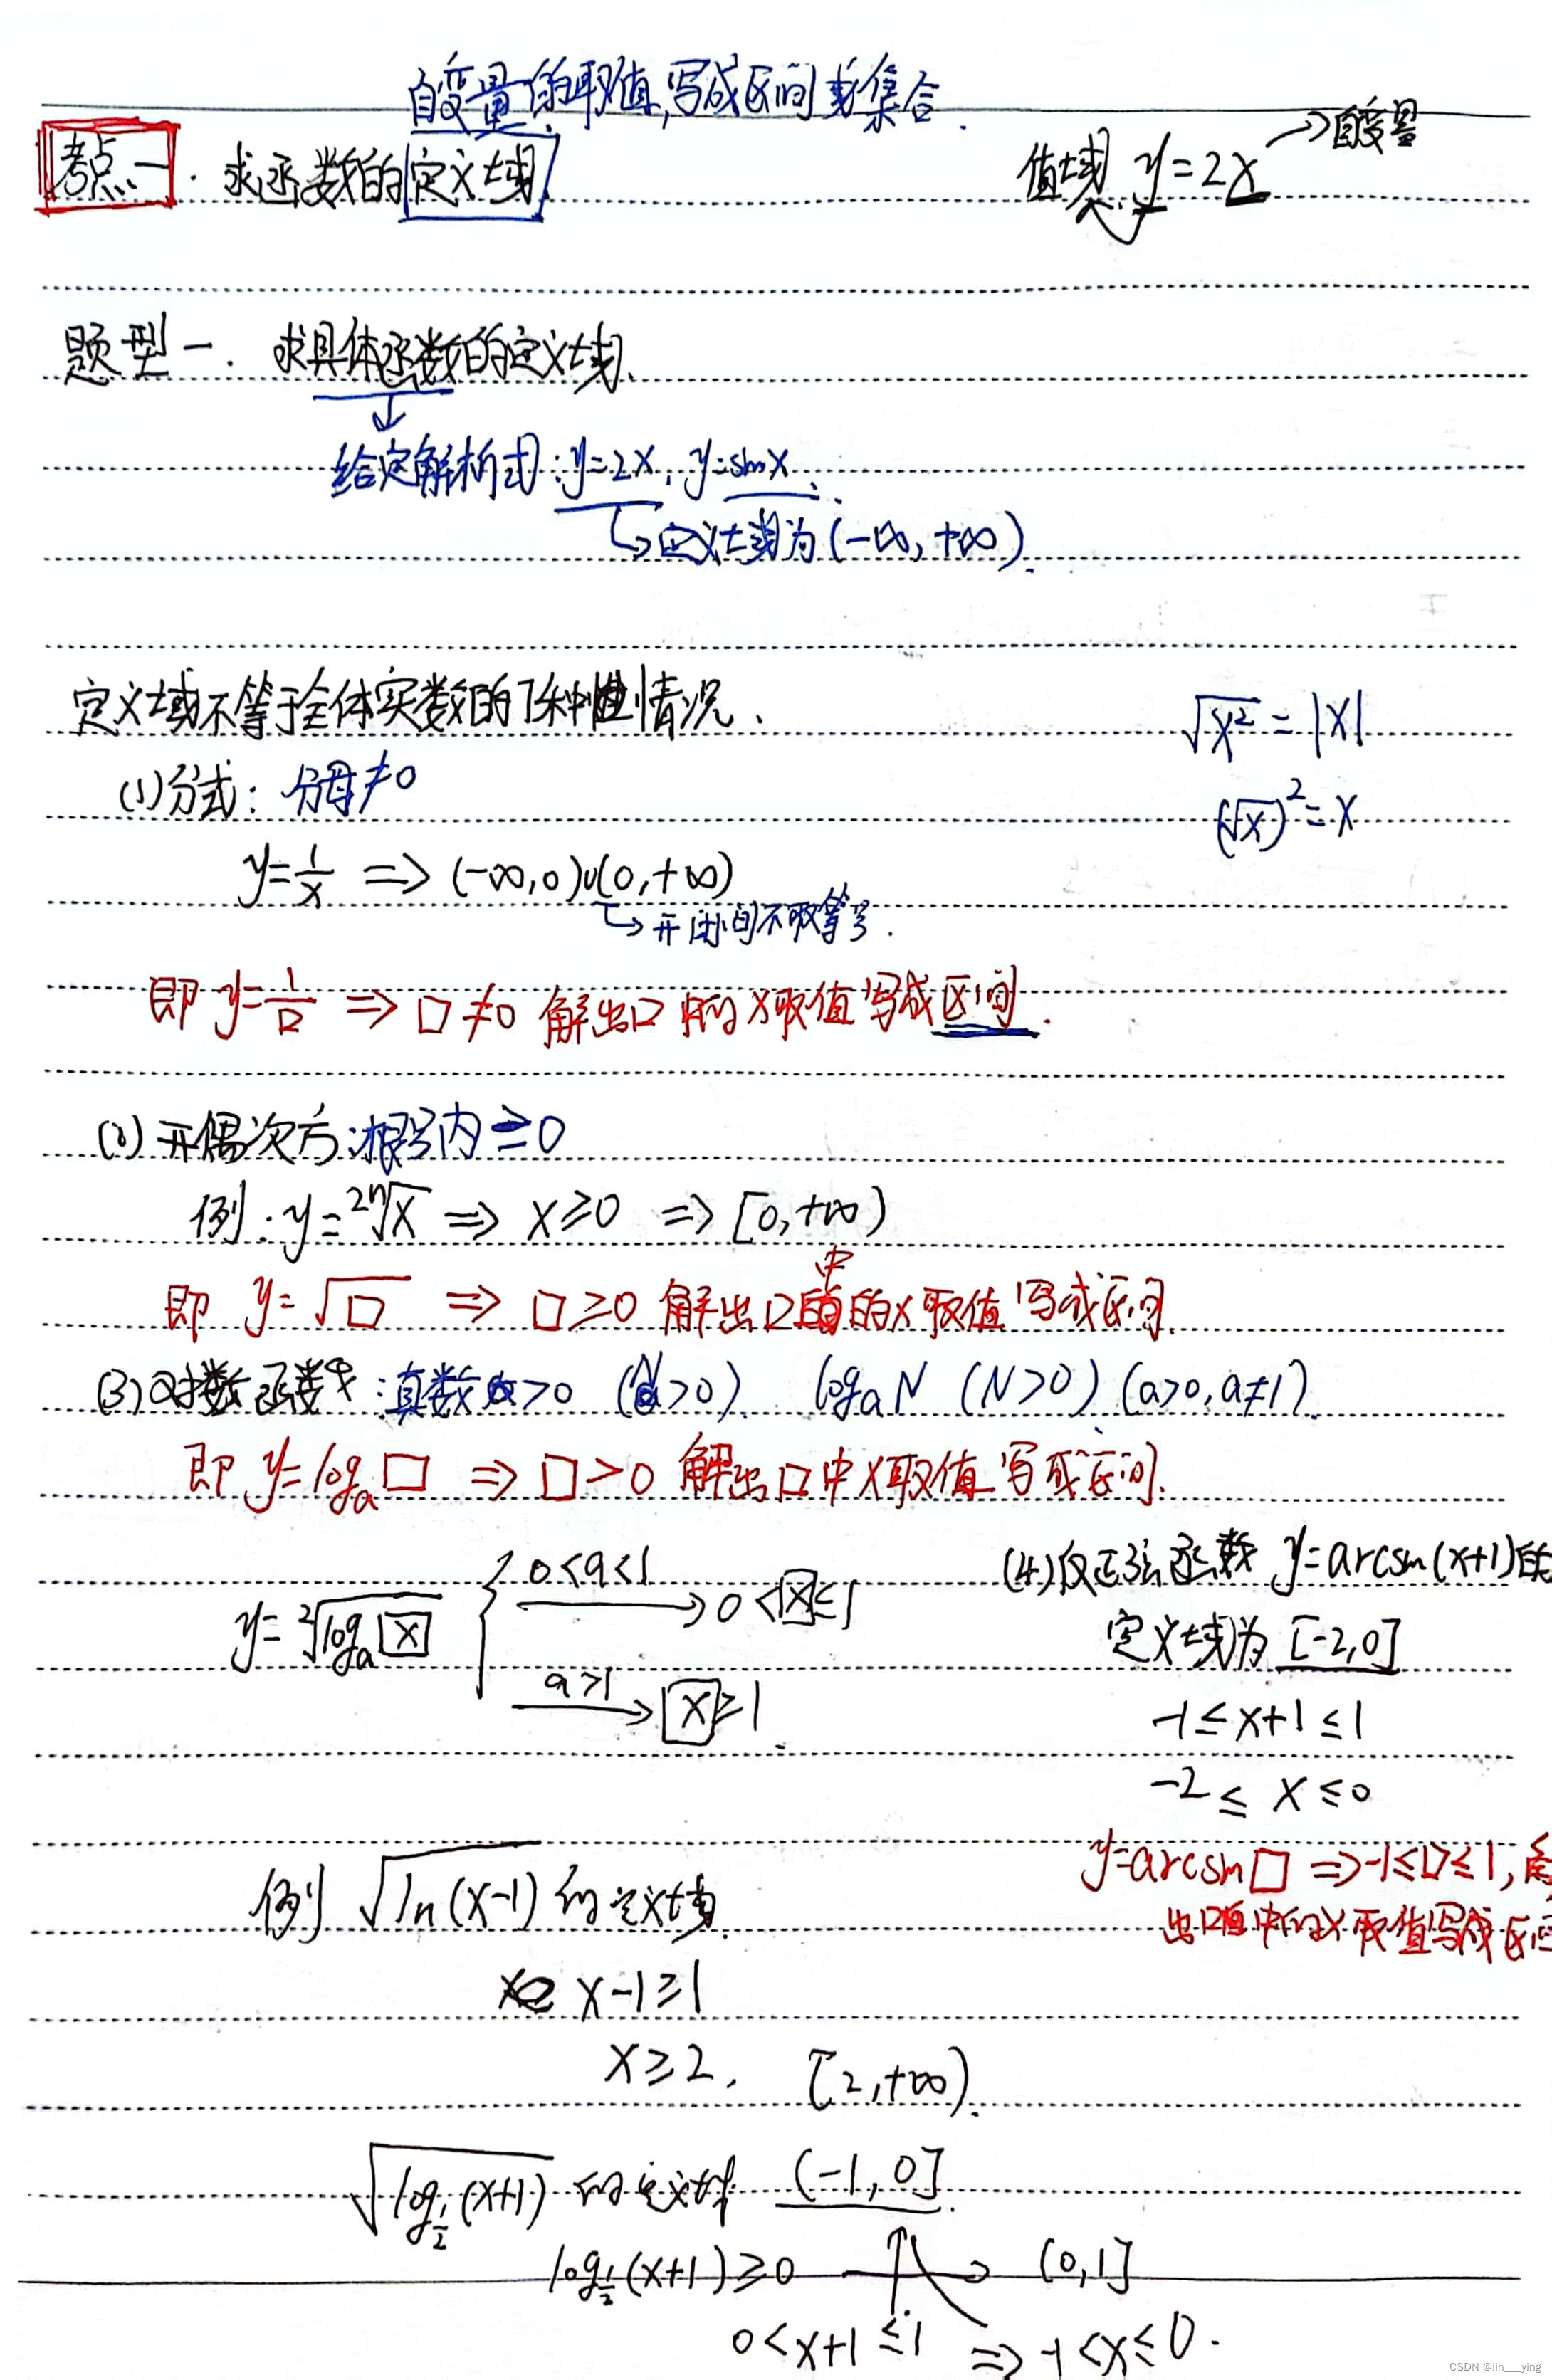 自变量的取值,写成区间或集合.
考点一. 求函数的定义域.
值域 y=2x → 自变量
题型一. 求具体函数的定义域.
给定解析式: y=2x, y=sinx.
↳ 定义域为(-∞, +∞).
定义域不等于全体实数的7种情况.
√x² = |x|
(1)分式: 分母≠0
(√x)² = x
y=1/x ⇒ (-∞,0)∪(0,+∞)
↳ 开区间不取等号.
即 y=1/□ ⇒ □≠0 解出□中的x取值写成区间.
(2) 开偶次方:根号内≥0
例: y=²ⁿ√x ⇒ x≥0 ⇒ [0,+∞)
即 y=√□ ⇒ □≥0 解出□中的x取值写成区间.
(3)对数函数:真数>0 (N>0). logₐN (N>0) (a>0, a≠1).
即 y=logₐ□ ⇒ □>0 解出□中x取值写成区间.
(4)反正弦函数 y=arcsin(x+1)的
定义域为 [-2,0]
-1≤x+1≤1
-2≤x≤0
y=arcsin□ ⇒ -1≤□≤1,
出□中的x取值写成区间
y=²√logₐx { 0<a<1 → 0<x≤1
a>1 → x≥1.
例 √ln(x-1) 的定义域.
x-1≥1
x≥2, [2,+∞).
√log½(x+1) 的定义域 (-1,0].
log½(x+1)≥0 (0,1]
0<x+1≤1 ⇒ -1<x≤0.
CSDN @lin___ying